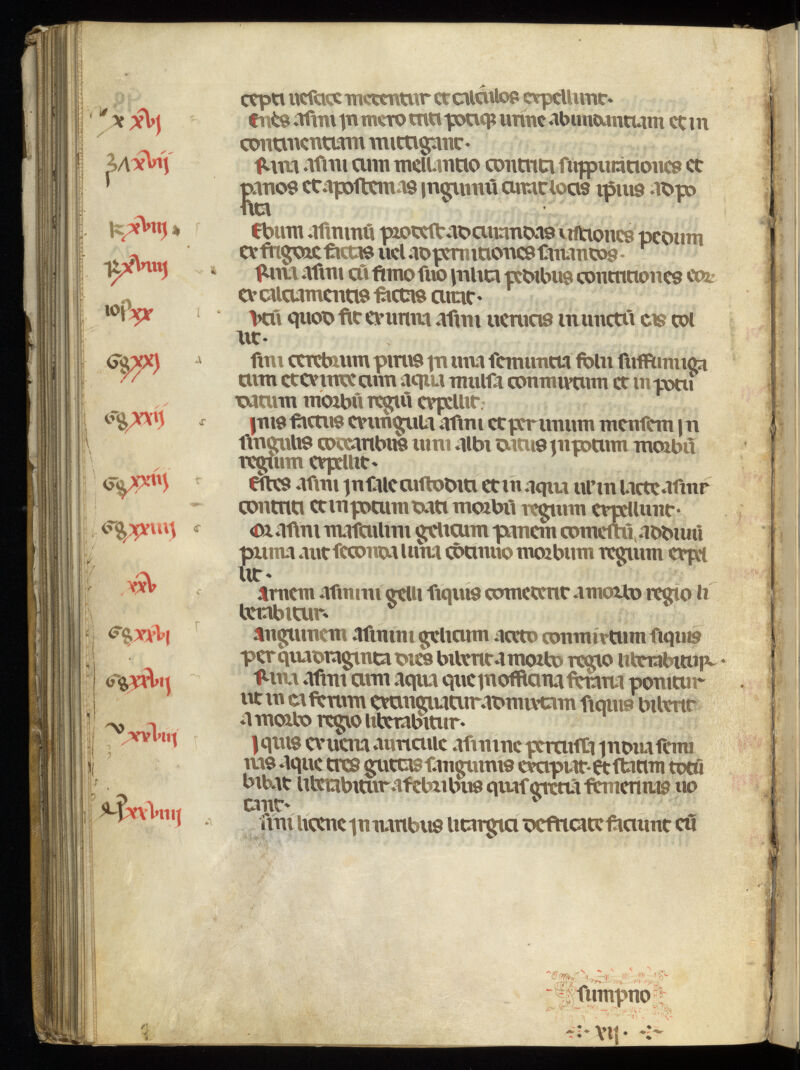 cepti uesice metentur et calculos expellunt.
x xvj
Entes asini jn mero triti potiqꝫ urine abundantiam et in
continentiam mittigant.
xvij
Rina asini cum mellantio contrita suppurationes et
panos et apostemas jnguinū curat locis ipsius adpo
sita
xviij
Ebum asininū prodest ad curandas ustiones pedum
ex frigore factas uel ad pernitiones sanandos.
xviiij
Rina asini cū fimo suo jnlita pedibus contritiones eoꝝ
ex calciamentis factas curat.
xx
utū quod fit ex urina asini uerucis inunctū eas tol
lit.
xxj
sini cerebrum prius jn una semuncia folii suffumiga
tum et ex inde cum aqua mulsa conmixtum et in potū
datum morbū regiū expellit.
xxij
jnis factus ex ungula asini et per unum mensem jn
singulis coclearibus uini albi datus jn potum morbū
regium expellit.
xxiij
Estes asini jn sale custoditi et in aqua ul' in lacte asine
contriti et in potum dati morbū regium expellunt.
xxiiij
Or asini masculini gelicum panem comestū, ad diuū
prima aut secunda luna cōtinuo morbum regium expel
lit.
xxv
arnem asinini gelli siquis comederit a morbo regio li
berabitur.
xxvj
anguinem asinini gelicum aceto conmixtum siquis
per quadraginta dies biberit a morbo regio liberabitur.
xxvij
Rina asini cum aqua que jn officina feraria ponitur
ut in ea ferrum extinguatur admixtam siquis biberit
a morbo regio liberabitur.
xxviij
jquis ex uena auricule asinine percussa jn dua semi
nas aque tres guttas sanguinis excipiat. et statim totū
bibat liberabitur a febribus quas greci amemerinas uo
cant.
xxviiij
sini licene jn naribus litargici defricate faciunt eū
sumpno
.xij.